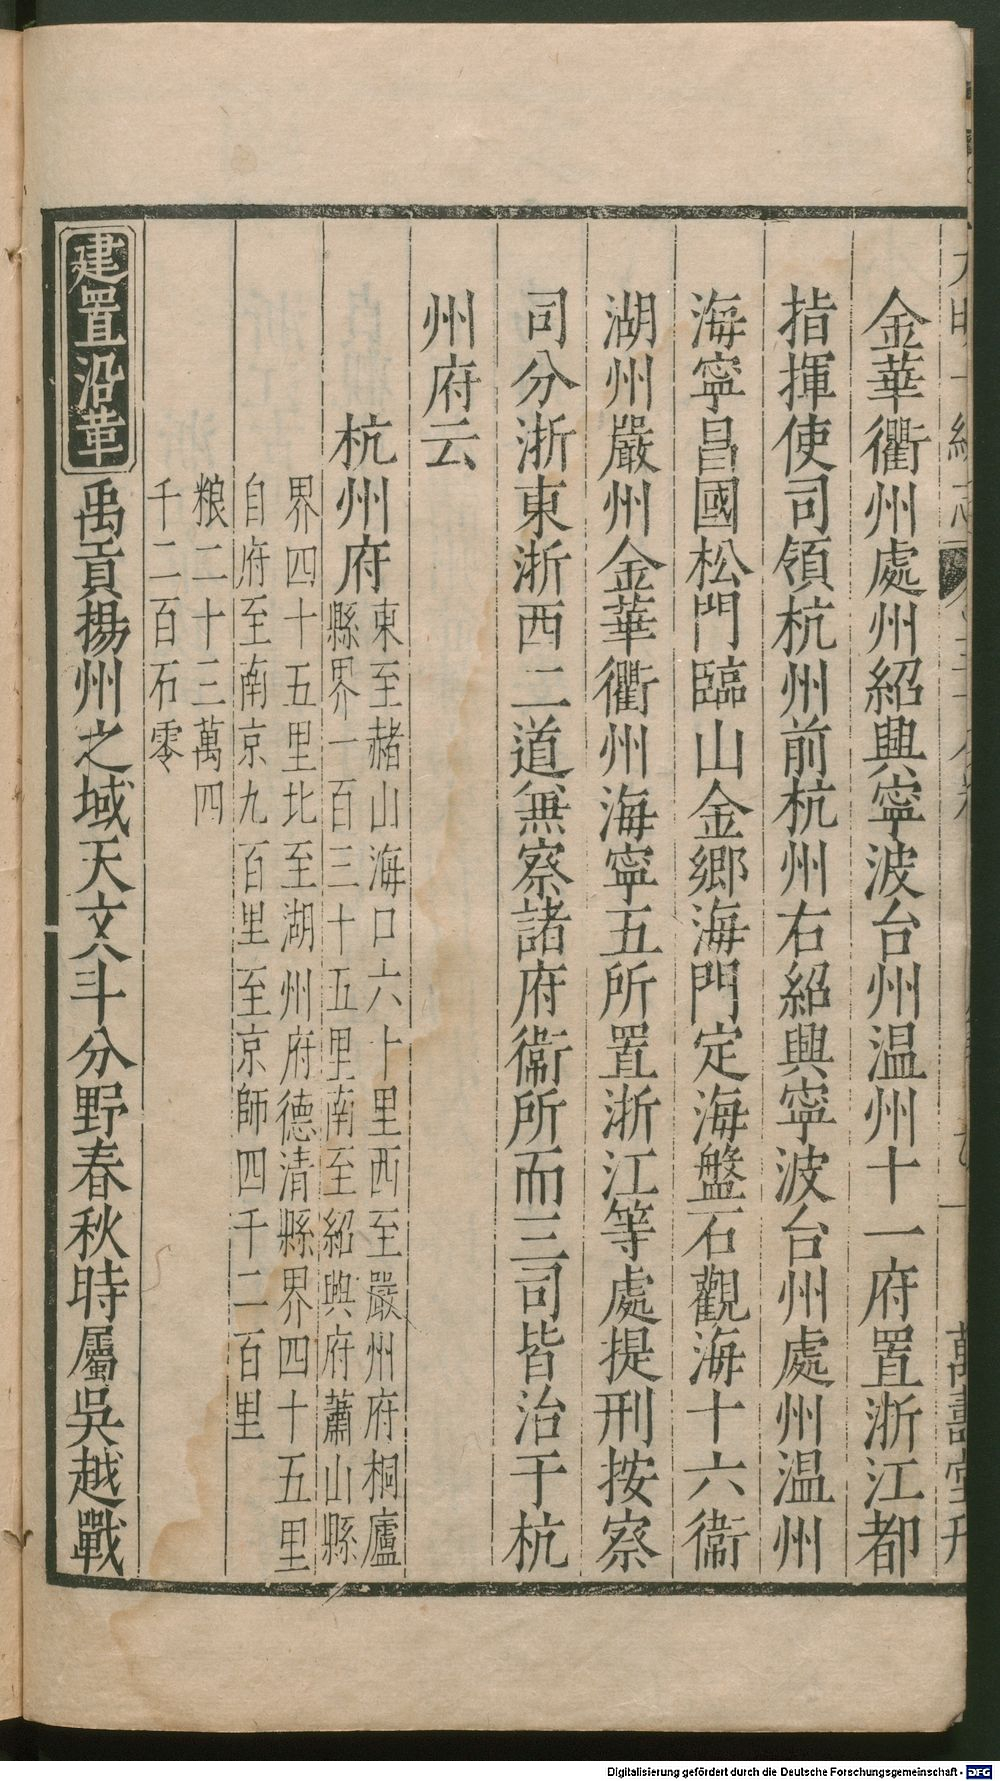 金華衢州處州紹興寧波台州温州十一府置浙江都
指揮使司領杭州前杭州右紹興寧波台州處州温州
海寧昌國松門臨山金鄉海門定海盤石觀海十六衞
湖州嚴州金華衢州海寧五所置浙江等處提刑按察
司分浙東浙西二道無察諸府衞所而三司皆治于杭
州府云
杭州府
東至赭山海口六十里西至嚴州府桐廬
縣界一百三十五里南至紹興府蕭山縣
界四十五里北至湖州府德清縣界四十五里
自府至南京九百里至京師四千二百里
粮二十三萬四
千二百石零
建置沿革
禹貢揚州之域天文斗分野春秋時屬吳越戰
萬壽堂刊
Digitalisierung gefördert durch die Deutsche Forschungsgemeinschaft - DFG